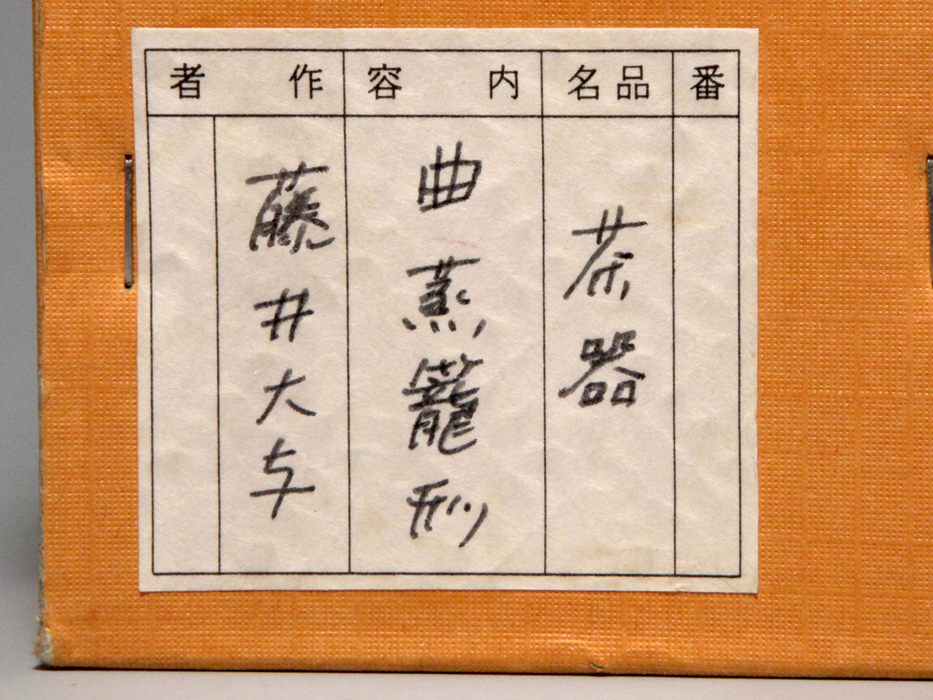 番
品名
茶器
内容
曲蒸籠形
作者
藤井大与